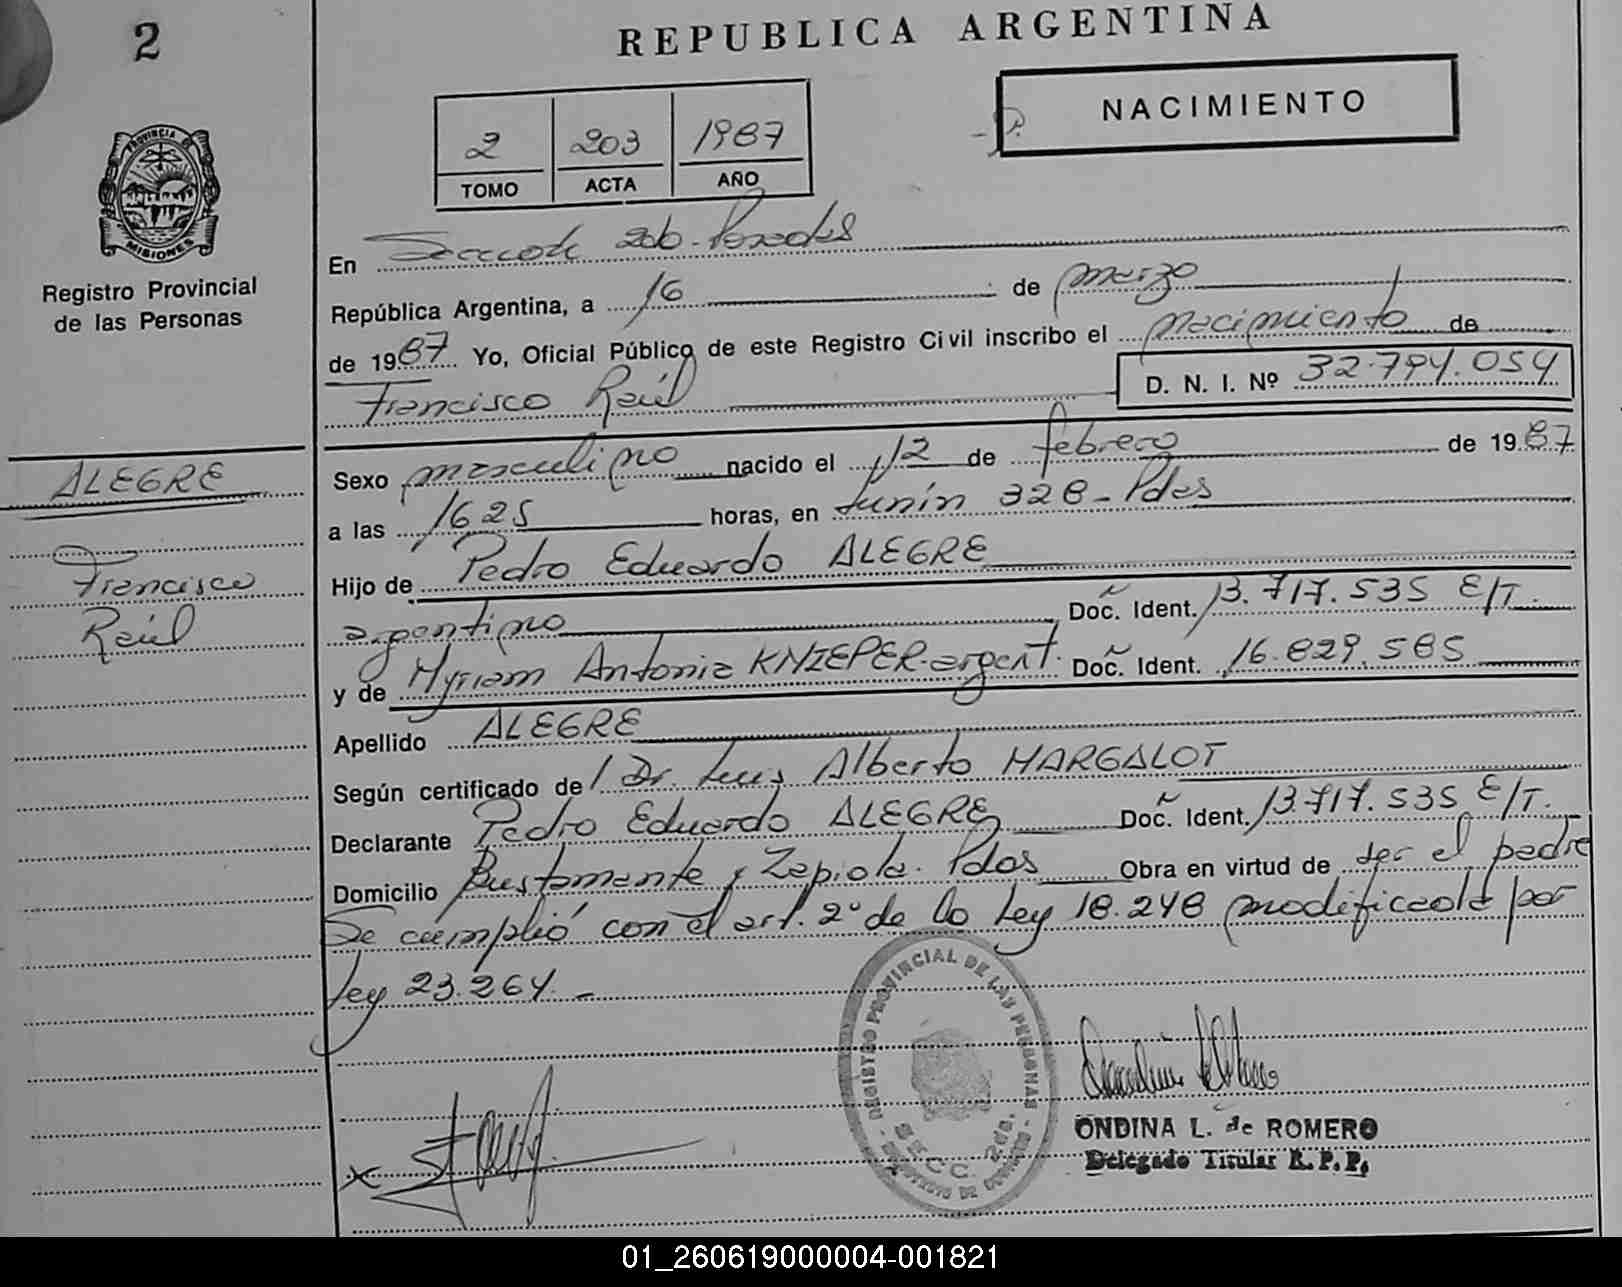 2
REPUBLICA ARGENTINA
NACIMIENTO
2 203 1987
TOMO ACTA AÑO
PROVINCIA DE
MISIONES
Registro Provincial
de las Personas
En Sección 2da. Posadas
República Argentina, a 16 de marzo
de 1987 Yo, Oficial Público de este Registro Civil inscribo el nacimiento de
Francisco Raúl D. N. I. Nº 32.794.054
ALEGRE
Francisco
Raúl
Sexo masculino nacido el 12 de febrero de 1987
a las 1625 horas, en Junín 328 - Pdas
Hijo de Pedro Eduardo ALEGRE
argentino Doc. Ident. 13.717.535 E/T.
y de Myriam Antonia KNIEPER - argent. Doc. Ident. 16.829.585
Apellido ALEGRE
Según certificado de Dr. Luis Alberto MARGALOT
Declarante Pedro Eduardo ALEGRE Doc. Ident. 13.717.535 E/T.
Domicilio Bustamante y Zapiola. Pdas Obra en virtud de ser el padre
Se cumplió con el art. 2º de la Ley 18.248 modificada por
Ley 23.264. -
REGISTRO PROVINCIAL DE LAS PERSONAS
SECC. 2da.
ONDINA L. de ROMERO
Delegado Titular R. P. P.
01_260619000004-001821